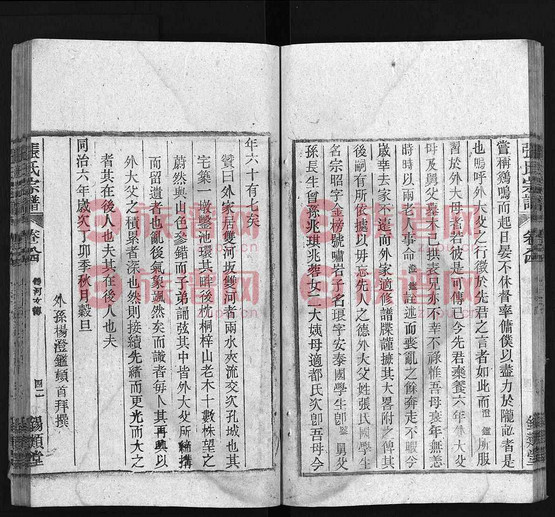 嘗稱鷄鳴而起日晏不休督率傭僕以盡力於隴畝者是
也嗚呼外大父之行徵於先君之言者如此而澄鑑所服
習於外大母者若彼是可傳已今先君棄養六年外大父
母及舅父母不已拱表兄亦不幸不祿惟吾母衰年無恙
時時以兩老人事命澄鑑註述而喪亂之餘奔走不暇今
歲幸去家不遠而外家適修譜牒謹撼其大畧附之俾其
後嗣有所依據以毋忘先人之德外大父姓張氏國學生
名宗昭字金榜號嘯岩子名環字安泰國學生卽澄舅父
孫長生曾孫兆琪兆蓉女二大姨母適都氏次卽吾母今
年六十有七矣
贊曰外家居雙河坂雙河者兩水夾流交次孔城也其
宅築一墩鑿池環其畔後枕桐梓山老木十數株望之
蔚然與山色參錯而子弟誦弦其中皆外大父之所締搆
而留遺者也亂後氣象颯然矣而識者每以其再興以
外大父之積累者深也然則接續先緒而更光而大之
者其在後人也夫其在後人也夫
同治六年歲次丁卯季秋月穀旦
外孫楊澄鑑頓首拜撰
張氏宗譜
卷八四
錫類堂